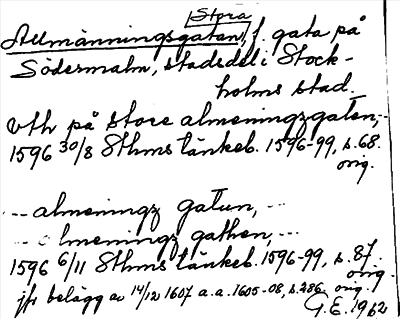 Stora
Allmänningsgatan, f. gata på
Södermalm, stadsdel i Stock-
holms stad.
vth på store almeningzgaten,-
1596 30/8 Sthms tänkeb. 1596-99, s. 68.
orig.
-- almeningz gatun, --
-- lmeningz gathen, --
1596 6/11 Sthms tänkeb. 1596-99, s. 87.
orig.
jfr belägg av 14/12 1607 a.a. 1605-08, s. 286. orig.
G.E. 1962